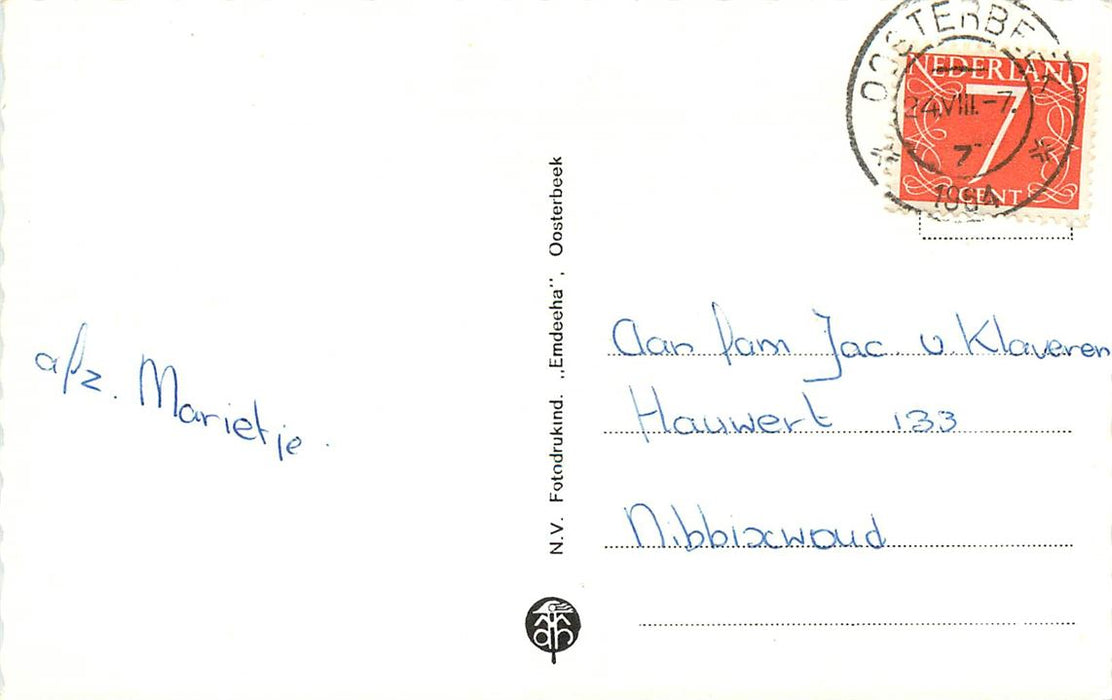 OOSTERBEEK
NEDERLAND
24.VIII.-7.
7
7
1964
CENT
a/z. Marietje.
N.V. Fotodrukind. „Emdeeha", Oosterbeek
Aan fam Jac. v. Klaveren
Hauwert 133
Nibbixwoud